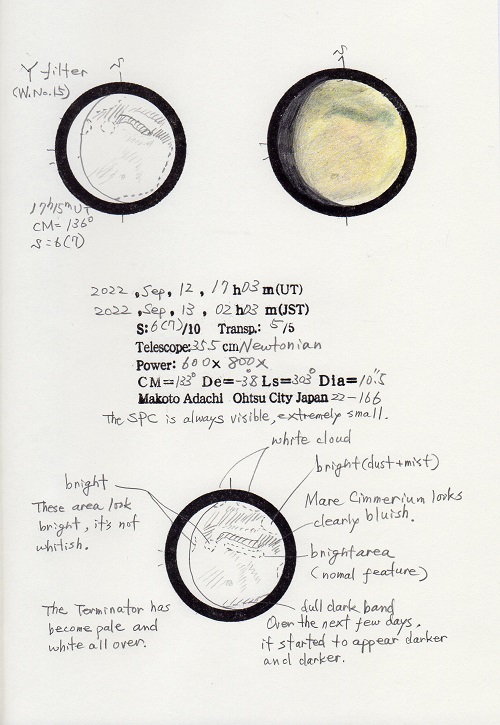 S
S
Y filter
(W.No.15)
17h15mUT
CM=136°
S=6(7)
2022 , Sep , 12 , 17 h 03 m (UT)
2022 , Sep , 13 , 02 h 03 m (JST)
S: 6(7)/10 Transp.: 5/5
Telescope: 35.5 cm/Newtonian
Power: 600× 800×
CM=133° De=-3.8 Ls=303° Dia=10".5
Makoto Adachi Ohtsu City Japan 22-166
The SPC is always visible, extremely small.
white cloud
bright (dust+mist)
bright
These area look
bright, it's not
whitish.
Mare Cimmerium looks
clearly bluish.
bright area
(nomal feature)
The Terminator has
become pale and
white all over.
dull dark band
Over the next few days,
it started to appear darker
and darker.